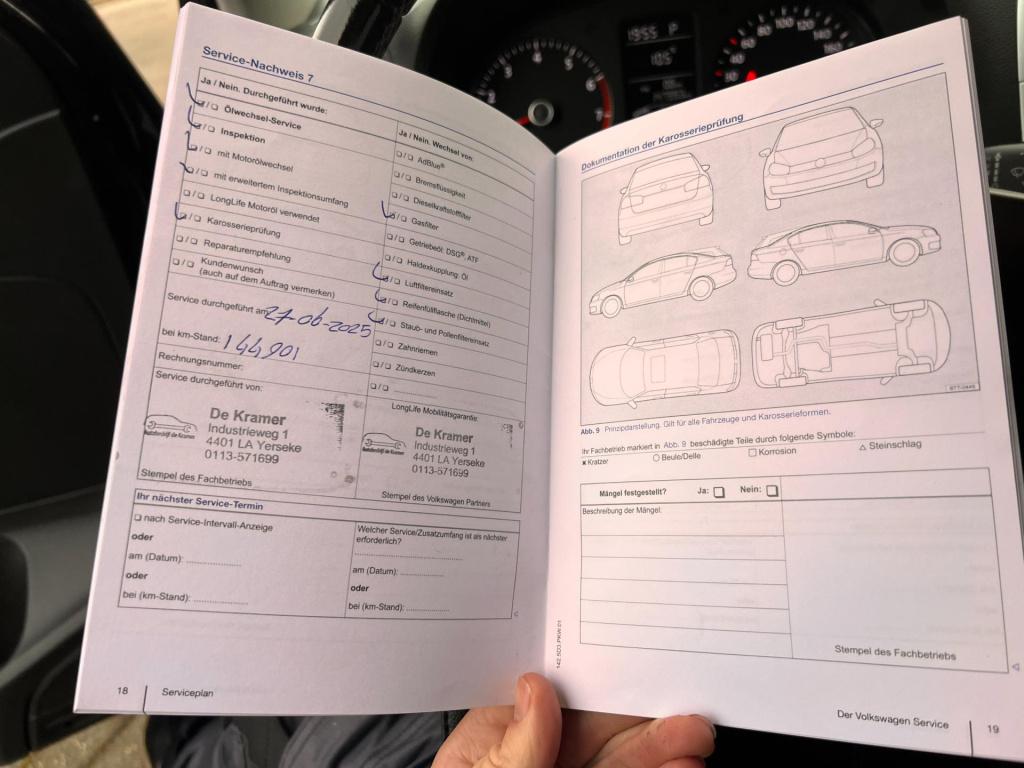 Service-Nachweis 7
Ja / Nein. Durchgeführt wurde:
Ölwechsel-Service
Inspektion
mit Motorölwechsel
mit erweitertem Inspektionsumfang
LongLife Motoröl verwendet
Karosserieprüfung
Reparaturempfehlung
Kundenwunsch
(auch auf dem Auftrag vermerken)
Service durchgeführt am: 27-06-2025
bei km-Stand: 144,901
Rechnungsnummer:
Service durchgeführt von:
De Kramer
Industrieweg 1
4401 LA Yerseke
0113-571699
Autobedrijf de Kramer
Stempel des Fachbetriebs
Ja / Nein. Wechsel von:
AdBlue®
Bremsflüssigkeit
Dieselkraftstofffilter
Gasfilter
Getriebeöl: DSG®, ATF
Haldexkupplung: Öl
Luftfiltereinsatz
Reifenfüllflasche (Dichtmittel)
Staub- und Pollenfiltereinsatz
Zahnriemen
Zündkerzen
LongLife Mobilitätsgarantie:
De Kramer
Industrieweg 1
4401 LA Yerseke
0113-571699
Autobedrijf de Kramer
Stempel des Volkswagen Partners
Ihr nächster Service-Termin
nach Service-Intervall-Anzeige
oder
am (Datum):
oder
bei (km-Stand):
Welcher Service/Zusatzumfang ist als nächster
erforderlich?
am (Datum):
oder
bei (km-Stand):
18 Serviceplan
142.5D3.PKW.01
Dokumentation der Karosserieprüfung
Abb. 9 Prinzipdarstellung. Gilt für alle Fahrzeuge und Karosserieformen.
Ihr Fachbetrieb markiert in Abb. 9 beschädigte Teile durch folgende Symbole:
Kratzer Beule/Delle Korrosion Steinschlag
Mängel festgestellt? Ja: Nein:
Beschreibung der Mängel:
Stempel des Fachbetriebs
Der Volkswagen Service 19
1955 P
105
2 3 4 5 6 7
80 100 120
140
160